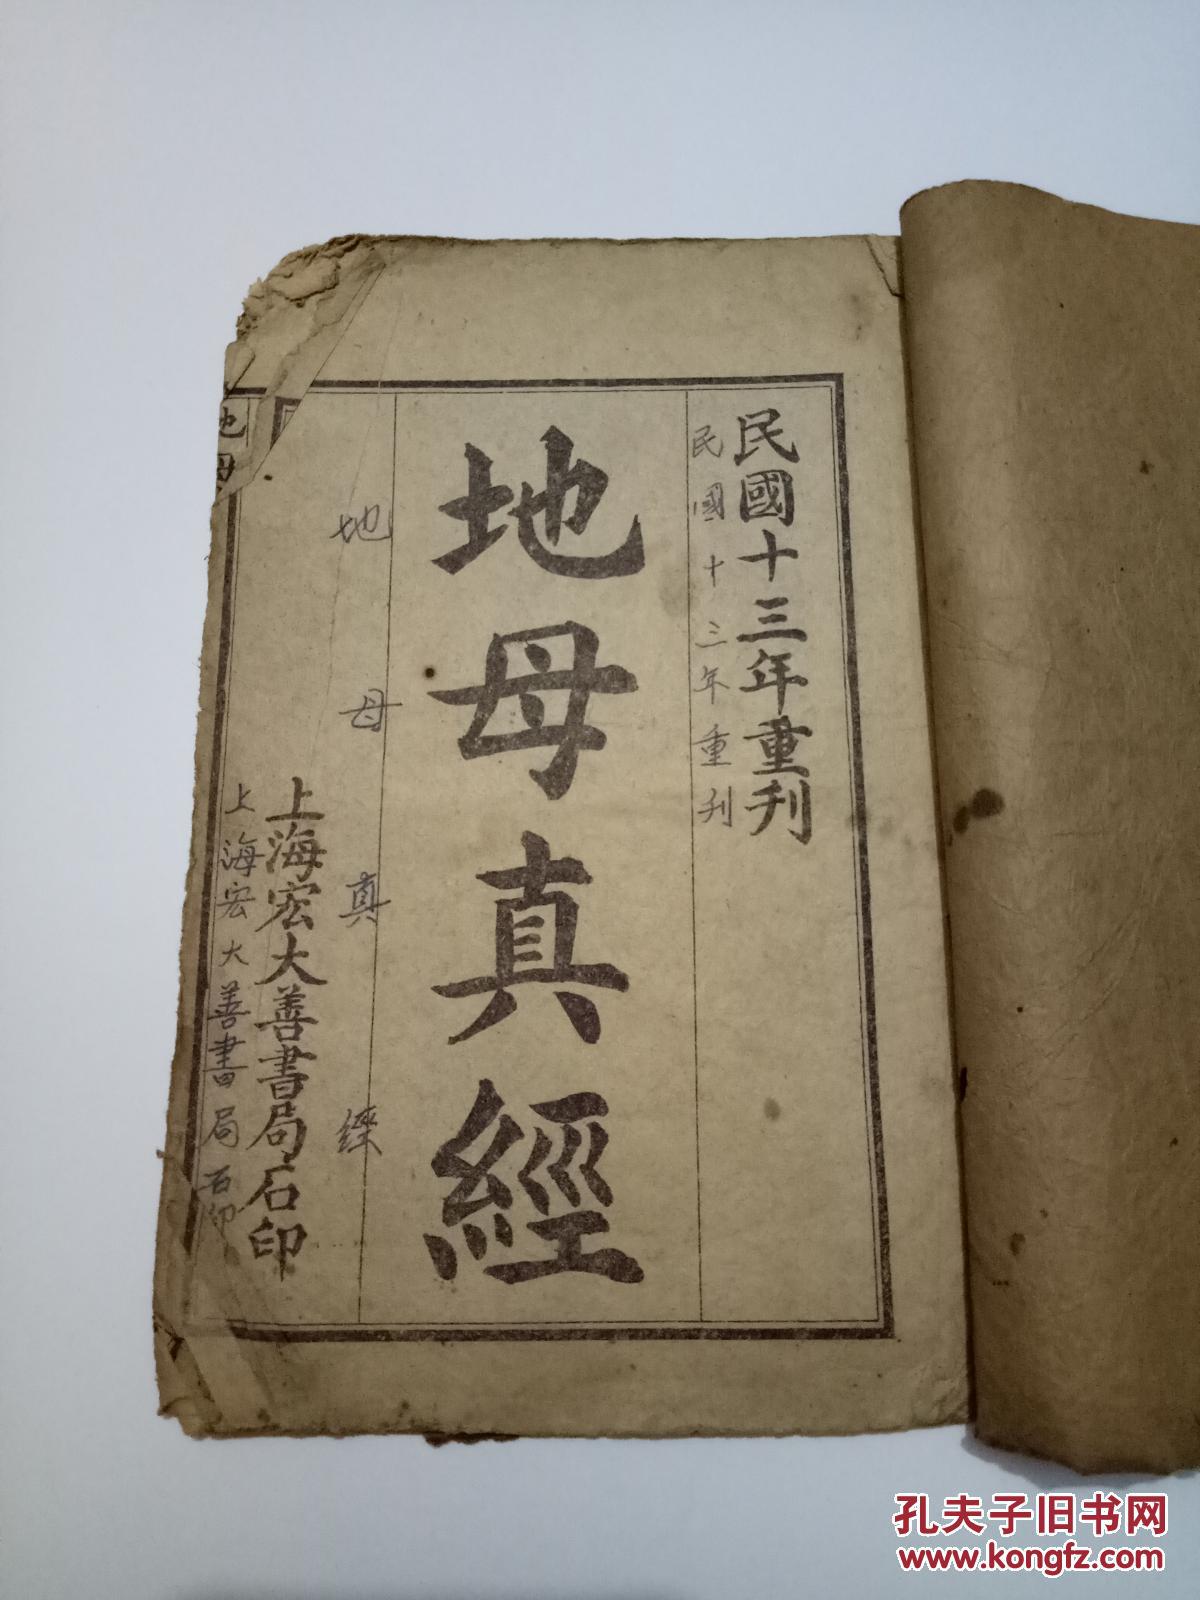 民國十三年重刋
民國十三年重刋
地母真經
地母真經
上海宏大善書局石印
上海宏大善書局石印
地母
孔夫子旧书网
www.kongfz.com